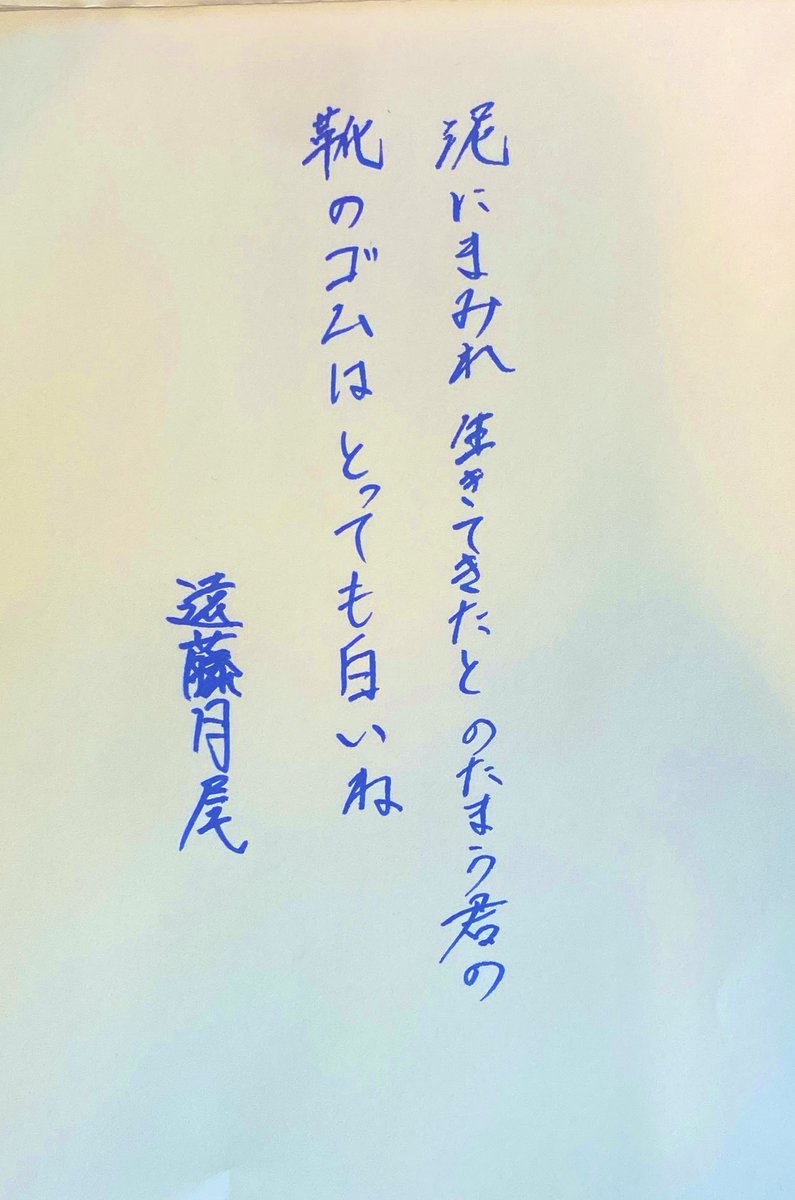 泥にまみれ生きてきたとのたまう君の
靴のゴムはとっても白いね
遠藤月尾